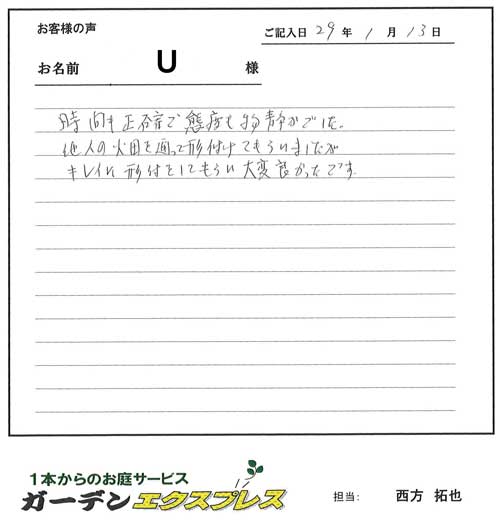 お客様の声
ご記入日 29 年 1 月 13 日
お名前 U 様
時間も正確で態度も物静かでした。
他人の火田を通って形付けてもらいましたが
キレイに形付をしてもらい大変良かったです
1本からのお庭サービス
ガーデンエクスプレス
担当: 西方 拓也